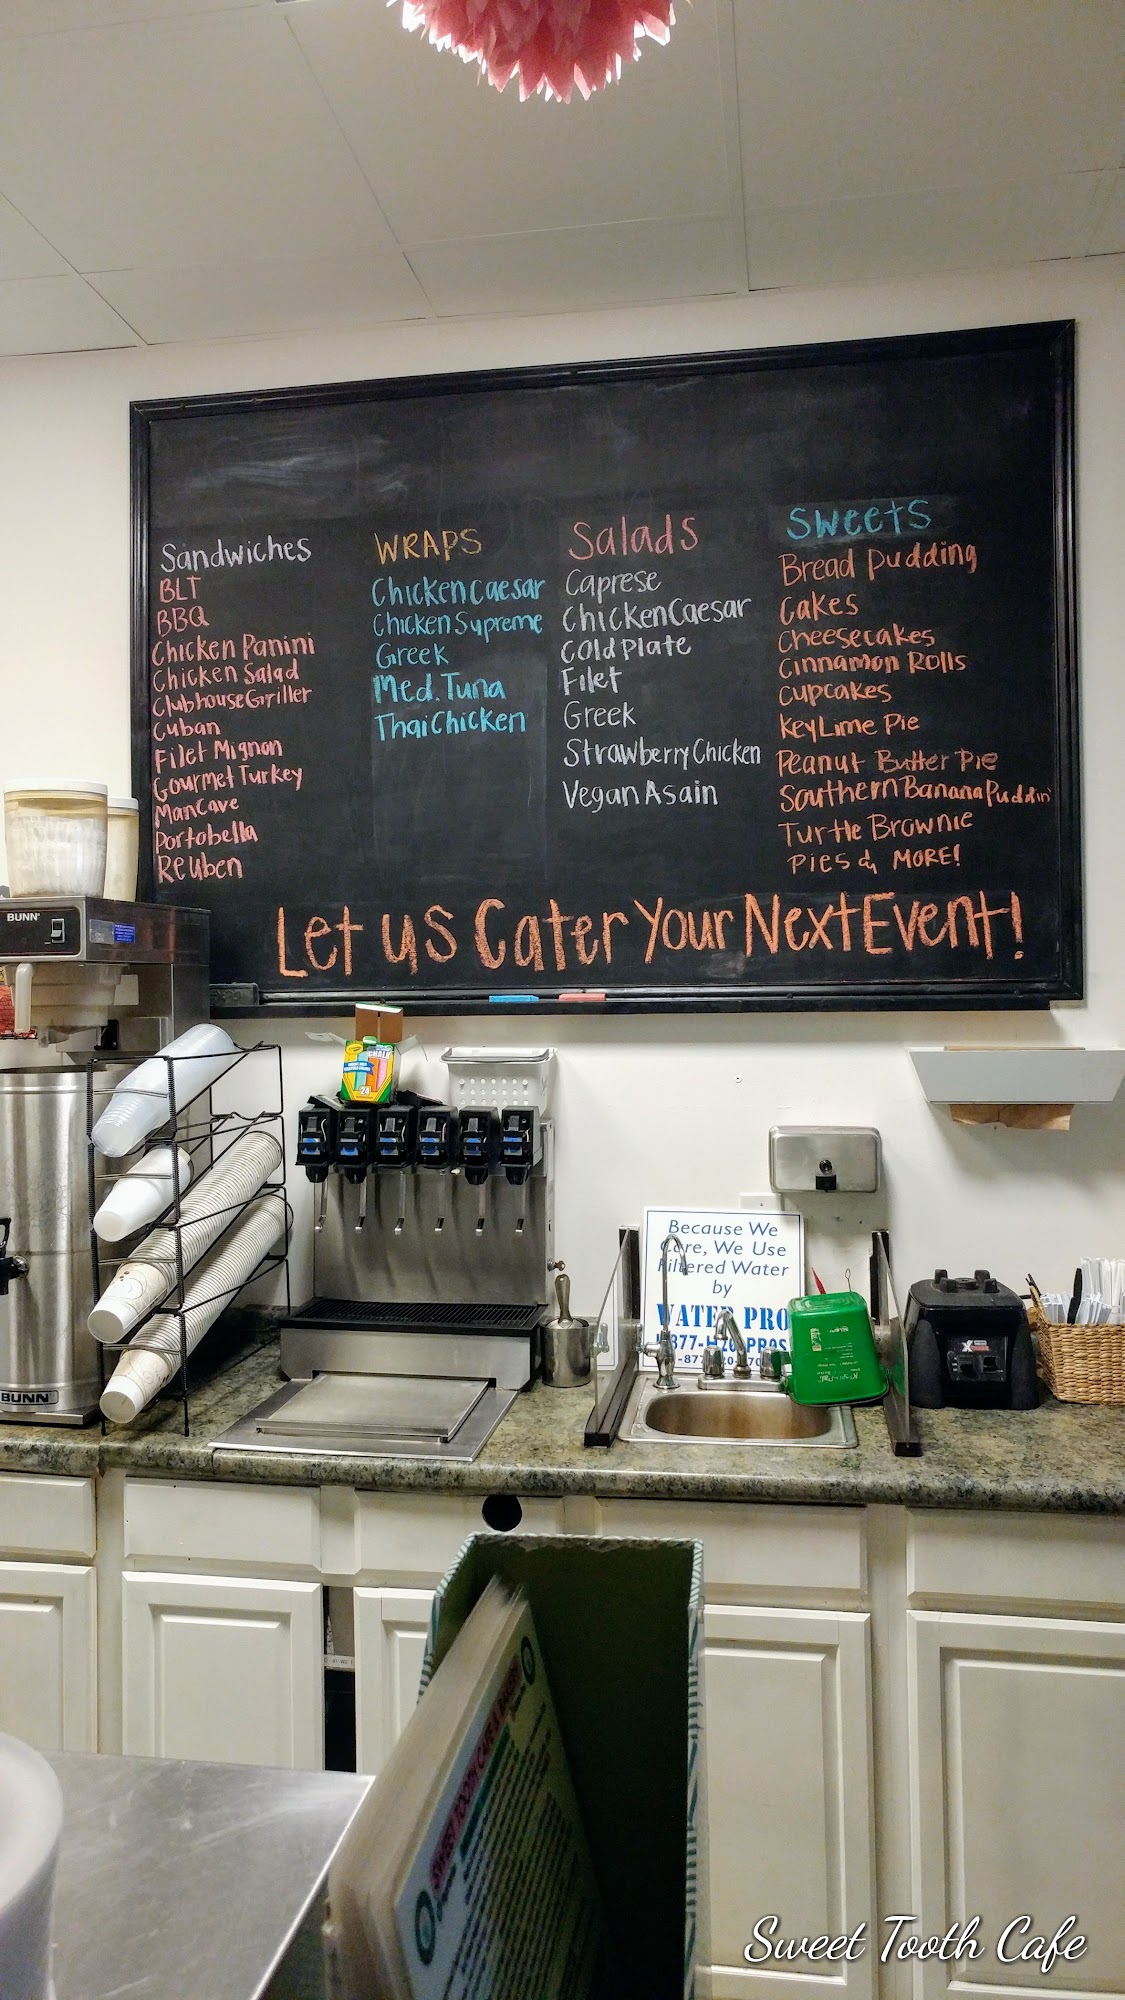 Sandwiches
BLT
BBQ
Chicken Panini
Chicken Salad
Clubhouse Griller
Cuban
Filet Mignon
Gourmet Turkey
Mancave
Portobella
Reuben
WRAPS
Chicken Caesar
Chicken Supreme
Greek
Med. Tuna
Thai Chicken
Salads
Caprese
Chicken Caesar
Cold Plate
Filet
Greek
Strawberry Chicken
Vegan Asain
Sweets
Bread Pudding
Cakes
Cheesecakes
Cinnamon Rolls
Cupcakes
Key Lime Pie
Peanut Butter Pie
Southern Banana Puddin'
Turtle Brownie
Pies & MORE!
Let us Cater Your Next Event!
BUNN
CHALK
24
Because We
Care, We Use
Filtered Water
by
WATER PRO
BUNN
SWEET TOOTH CAFE
Sweet Tooth Cafe